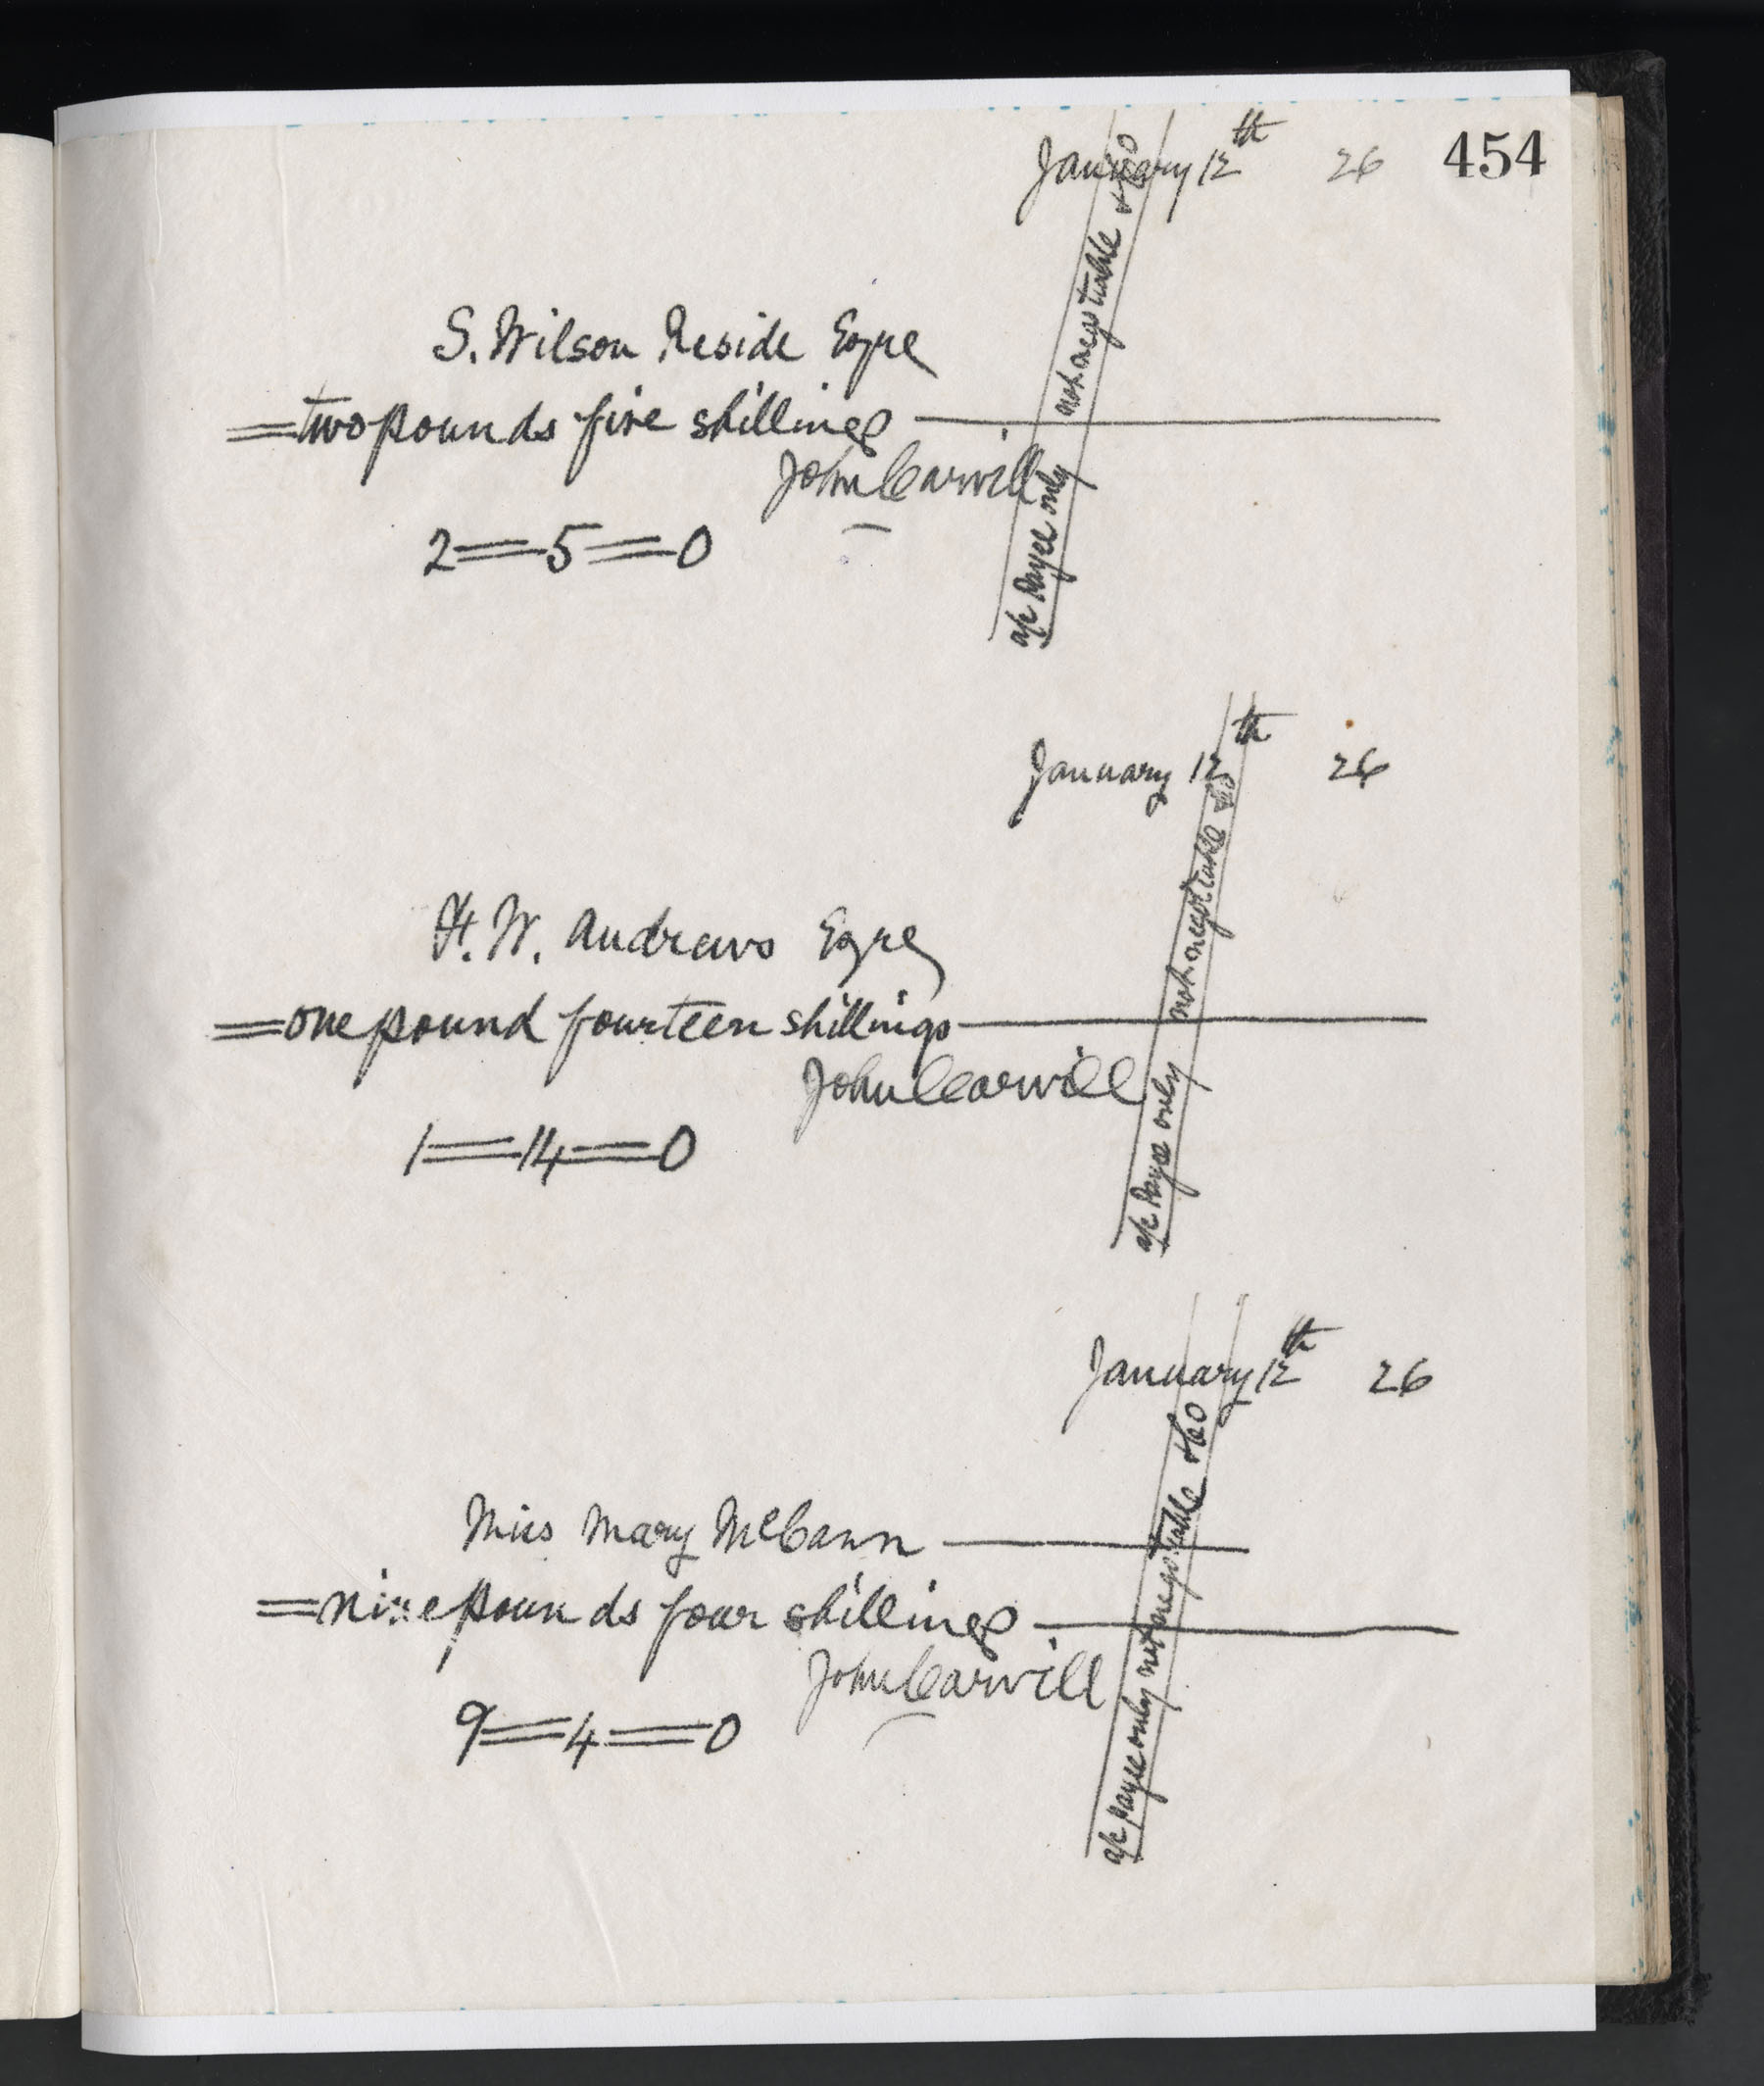 454
January 12th 26
S. Wilson Reside Esqre
=two pounds five shillings
John Carvill
2=5=0
a/c Payee only not negotiable & Co
January 12th 26
H. W. Andrews Esqre
=one pound fourteen shillings
John Carvill
1=14=0
a/c Payee only not negotiable & Co
January 12th 26
Miss Mary McCann
=nine pounds four shillings
John Carvill
9=4=0
a/c Payee only not negotiable & Co